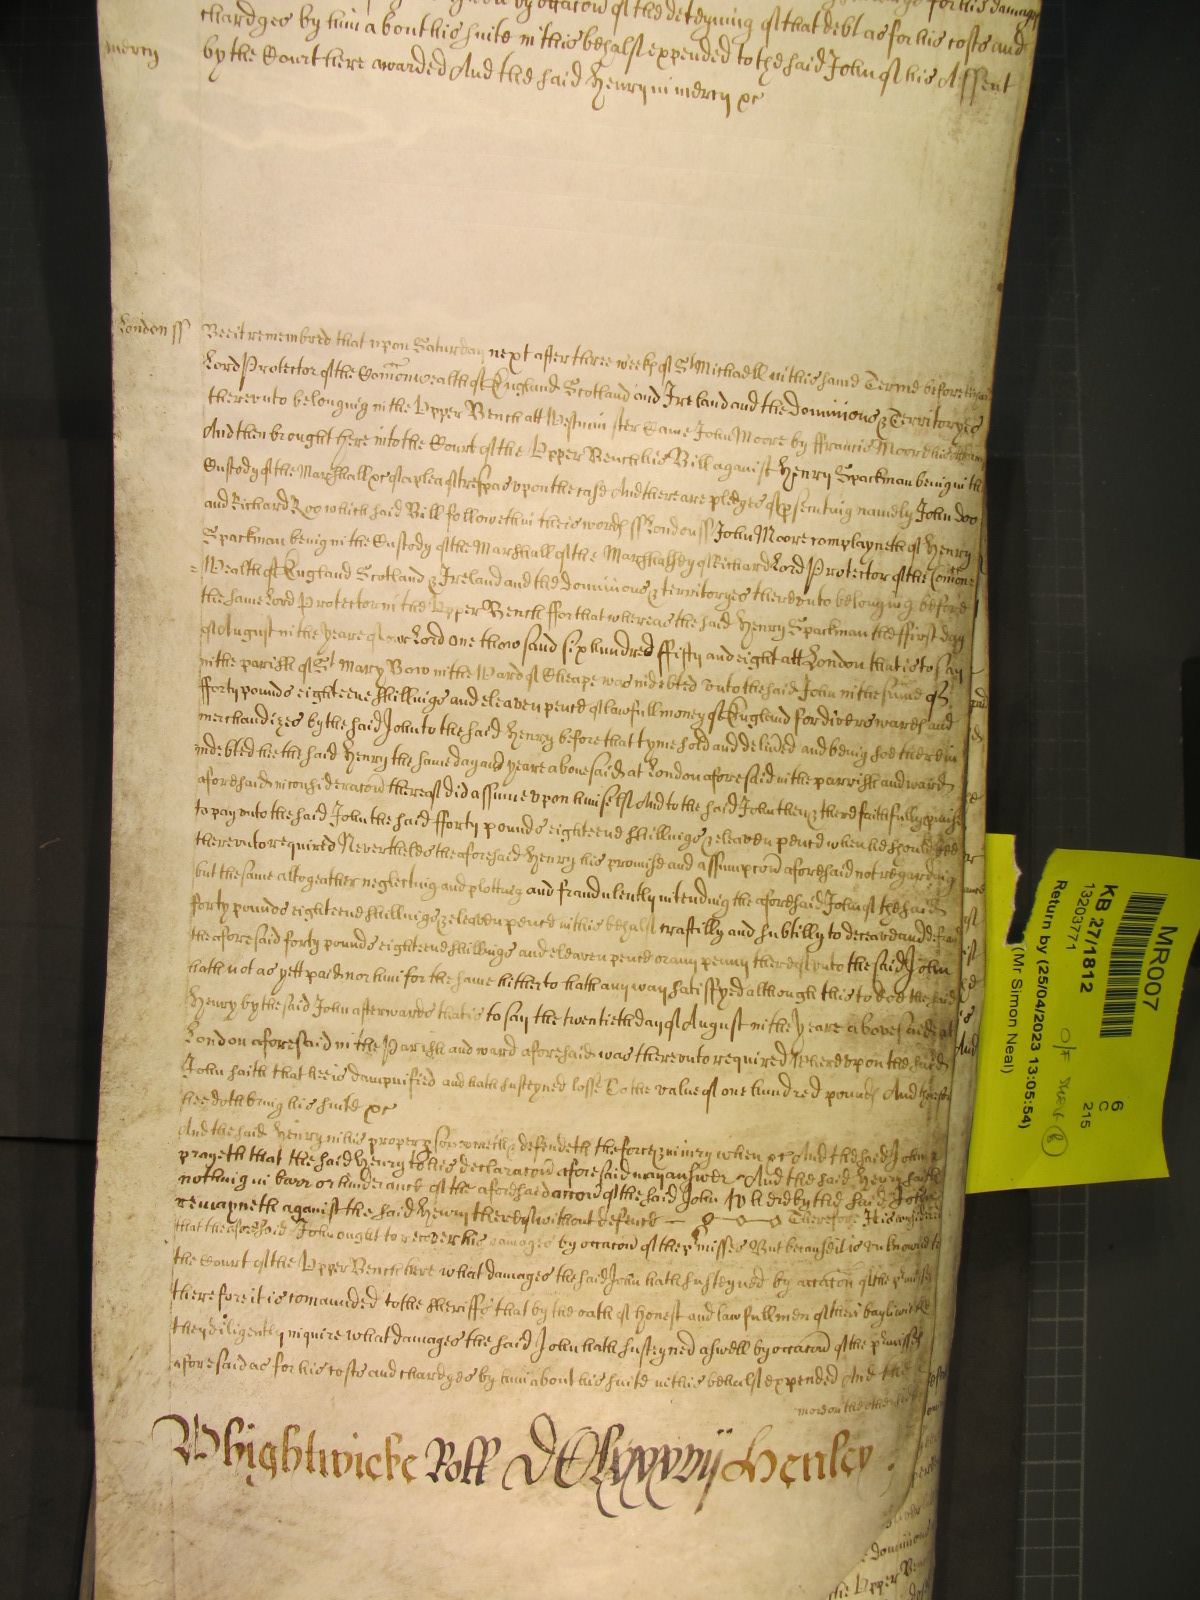 by occacon of the deteyning of that debt as for his costs and
chardges by him about his suite in this behalfe expended to the said John of his Assent
mercy
by the Court here awarded And the said Henry in mercy &c
London ss
Beeit remembred that upon Saturday next after three weekes of St Michaell in this same Terme before
Lord Protector of the Comonwealth of England Scotland and Ireland and the Dominions & Territoryes
thereunto belonging in the Upper Bench att Westminster Came John Moore by Francis Moore his Attorney
And then brought here into the Court of the Upper Bench his Bill against Henry Spackman being in the
Custody of the Marshall &c of a plea of trespas upon the case And there are pledges of prosecuting namely John Doo
and Richard Roo which said Bill followeth in theis words ss London ss John Moore complayneth of Henry
Spackman being in the Custody of the Marshall of the Marshalsey of Richard Lord Protector of the Comon
Wealth of England Scotland & Ireland and the Dominions & territoryes thereunto belonging before
the same Lord Protector in the Upper Bench ffor that whereas the said Henry Spackman the ffirst day
of August in the yeare of our Lord one thousand six hundred ffifty and eight att London that is to say
in the parish of St Mary Bow in the Ward of Cheape was indebted unto the said John in the sume of
fforty pounds eighteene shillings and eleaven pence of lawfull money of England for divers wares and
merchandizes by the said John to the said Henry before that tyme sold and delivered and being soe therein
indebted hee the said Henry the same day and yeare abovesaid at London aforesaid in the parrish and ward
aforesaid in consideracon thereof did assume upon himselfe And to the said John then & there faithfully promise
to pay unto the said John the said fforty pounds eighteene shillings & eleaven pence when hee should bee
thereunto required Neverthelesse the aforesaid Henry his promise and assumpcon aforesaid not regarding
but the same altogeather neglecting and plotting and fraudulently intending the aforesaid John of the said
forty pounds eighteene shillings & eleaven pence in this behalfe craftily and subtilly to deceave and defraud
the aforesaid forty pounds eighteene shillings and eleaven pence or any penny thereof unto the said John
hath not as yett paid nor him for the same hitherto hath any way satisfyed although this to doe the said
Henry by the said John afterwards that is to say the twentieth day of August in the yeare abovesaid at
London aforesaid in the Parish and ward aforesaid was thereunto required Whereupon the said
John saith that hee is dampnified and hath susteyned losse to the value of one hundred pounds And therefore
hee doth bring his suite &c
And the said Henry in his proper person cometh & defendeth the force & iniury when &c And the said John
prayeth that the said Henry to his declaracon aforesaid may answer And the said Henry saith
nothing in barr or hinderance of the aforesaid accon of the said John Whereby the said John
remayneth against the said Henry thereof without defence Therefore It is considered
that the aforesaid John ought to recover his damages by occacon of the premisses But because it is unknowne to
the Court of the Upper Bench here what damages the said John hath susteyned by occacon of the premisses
therefore it is comaunded to the Sheriffs that by the oath of honest and lawfull men of their bayliwicke
they diligently inquire what damages the said John hath susteyned aswell by occacon of the premisses
aforesaid as for his costs and chardges by him about his suite in this behalfe expended And the
more on the other side
Whightwicke Roll DCLxxxvij Henley
dominions
the Upper Ben
MR007
KB 27/1812
13203771
Return by (25/04/2023 13:05:54)
(Mr Simon Neal)
6
C
215